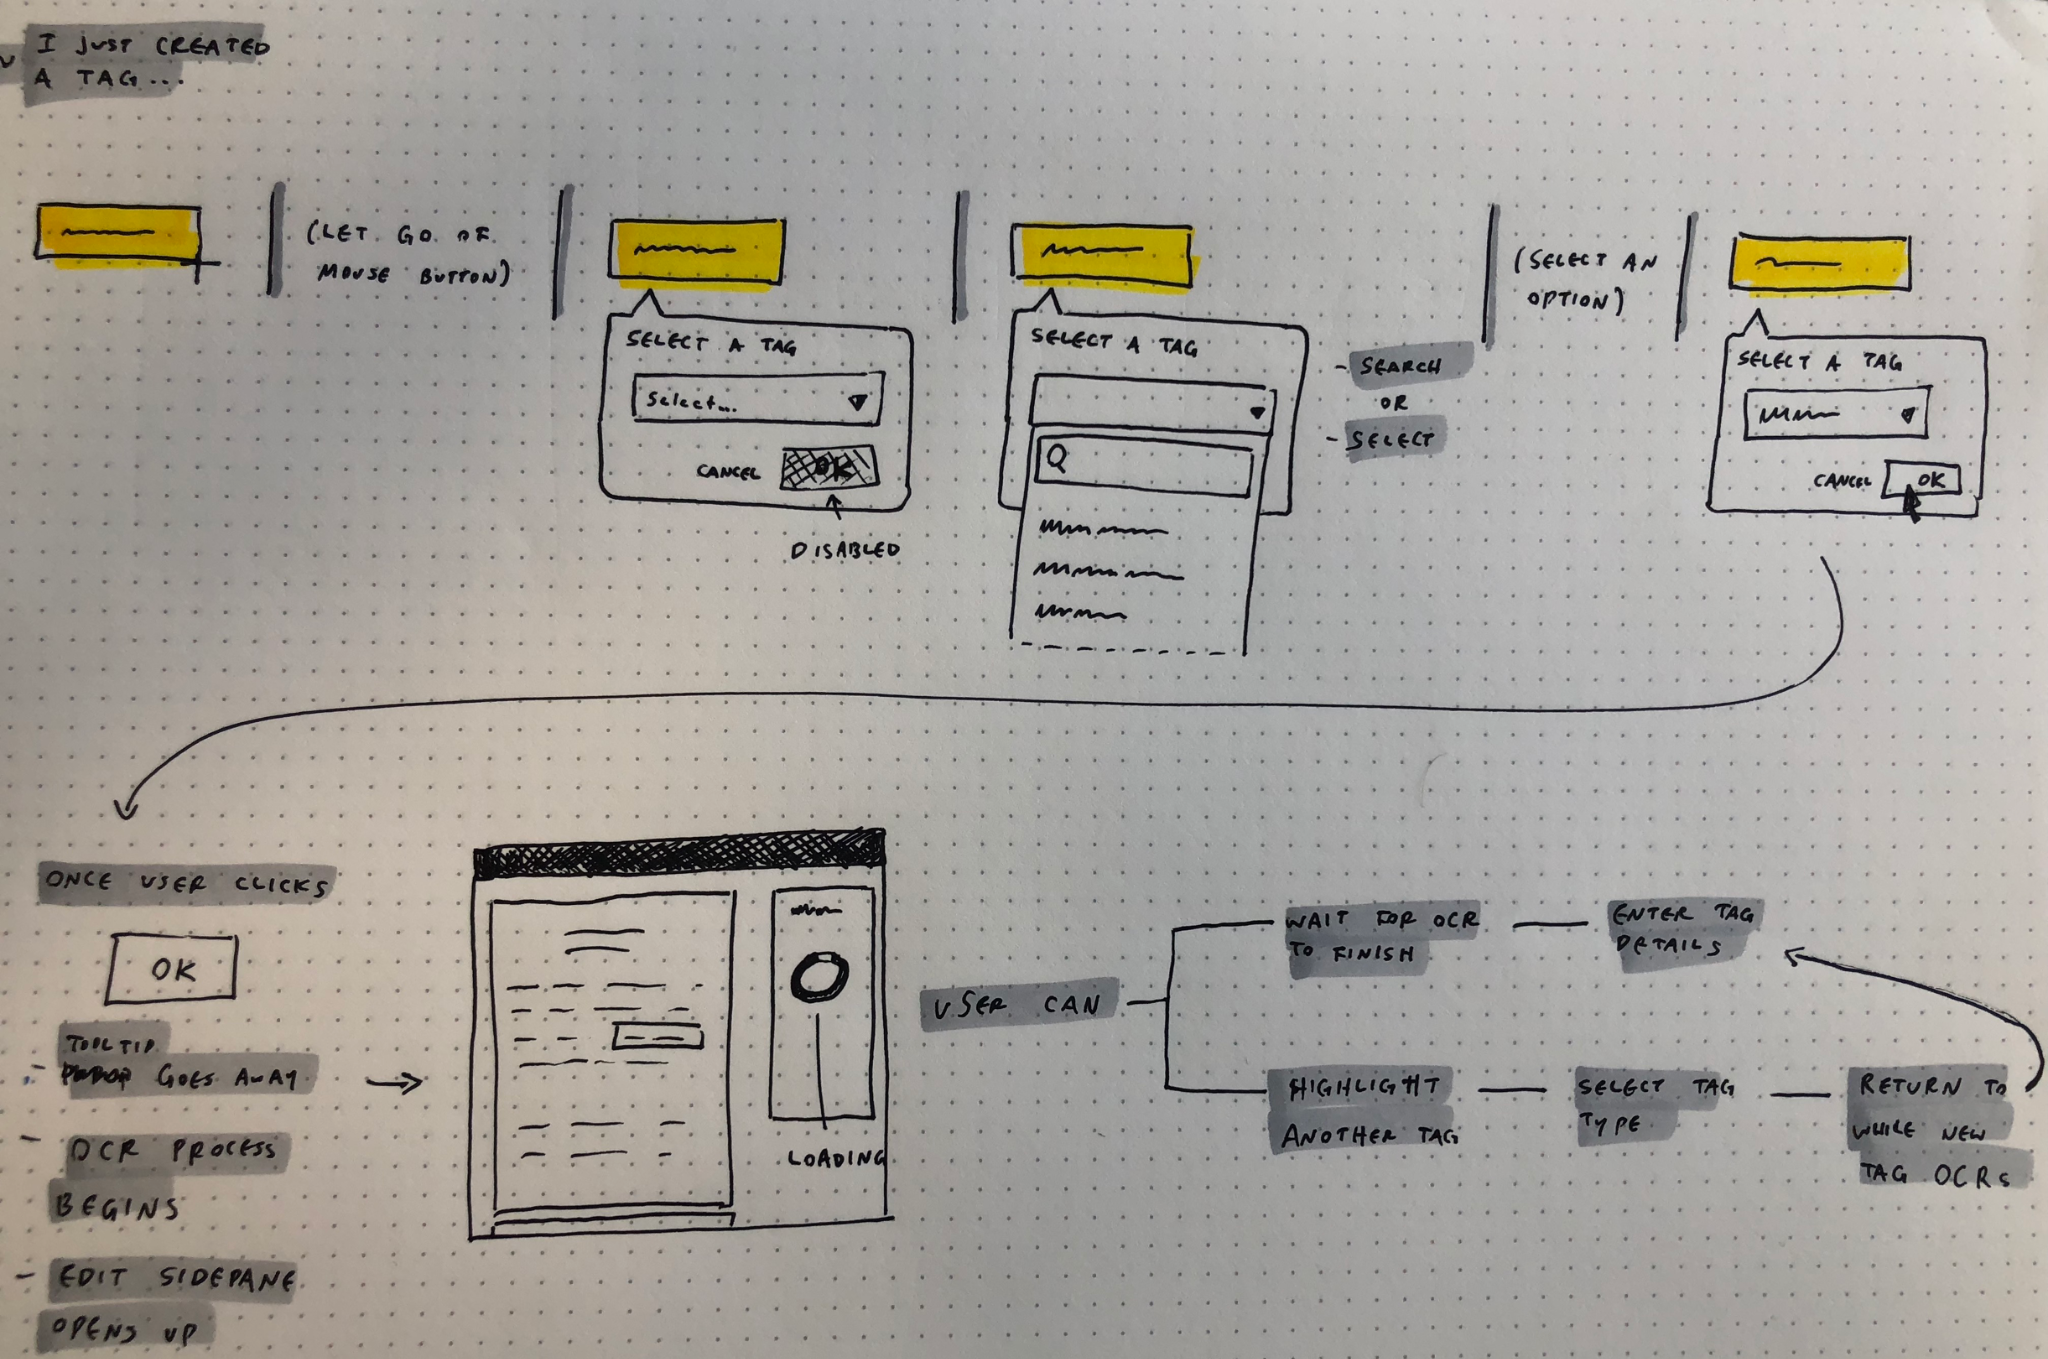 I JUST CREATED
A TAG...
(LET GO OF
MOUSE BUTTON)
SELECT A TAG
Select...
CANCEL OK
DISABLED
SELECT A TAG
- SEARCH
OR
- SELECT
(SELECT AN
OPTION)
SELECT A TAG
CANCEL OK
ONCE USER CLICKS
OK
TOOLTIP
- GOES AWAY
- OCR PROCESS
BEGINS
- EDIT SIDEPANE
OPENS UP
LOADING
USER CAN
WAIT FOR OCR
TO FINISH
ENTER TAG
DETAILS
HIGHLIGHT
ANOTHER TAG
SELECT TAG
TYPE
RETURN TO
WHILE NEW
TAG OCRs